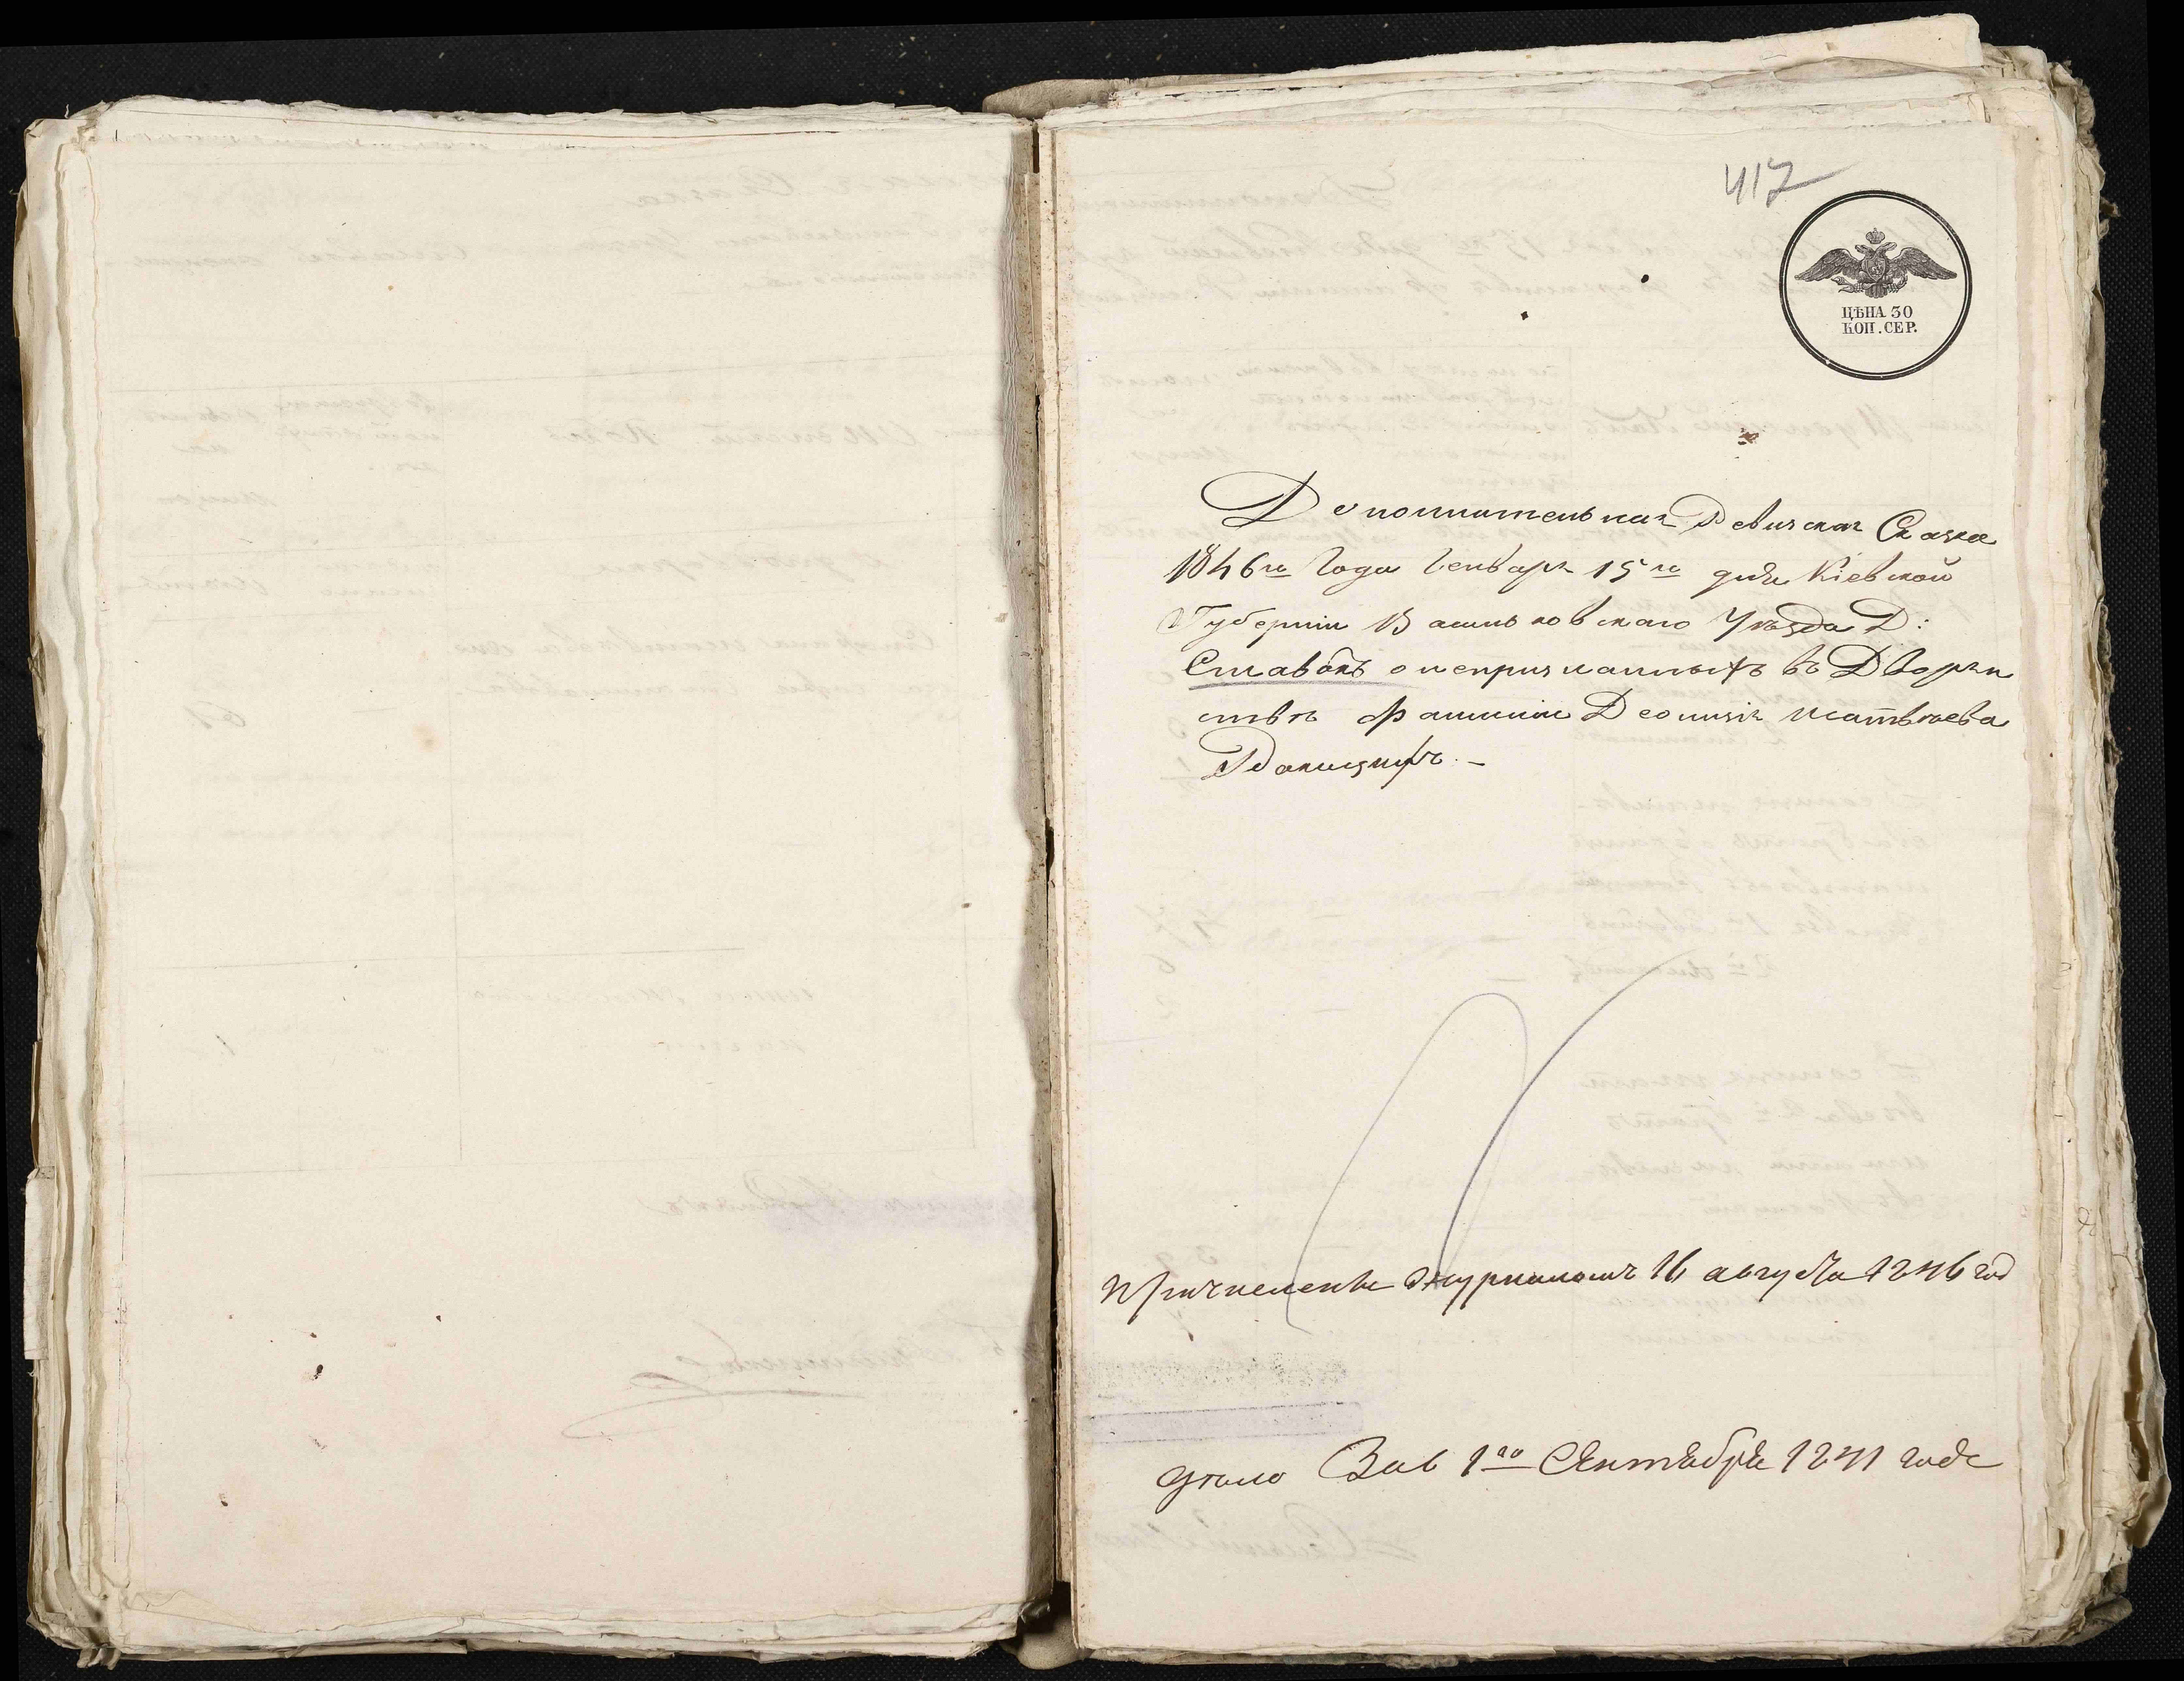 417
ЦѢНА 30
КОП. СЕР.
Дополнительная Ревизская Сказка
1846го Года Генваря 15го дня Кіевской
Губерніи Васильковскаго Уѣзда Д:
Ставокъ о непризнанныхъ въ Дворян
ствѣ фамиліи Деонизія Матвѣева
Ракицкихъ. –
Причислены Журналомъ 16 августа 1846 год
1го Сентября года